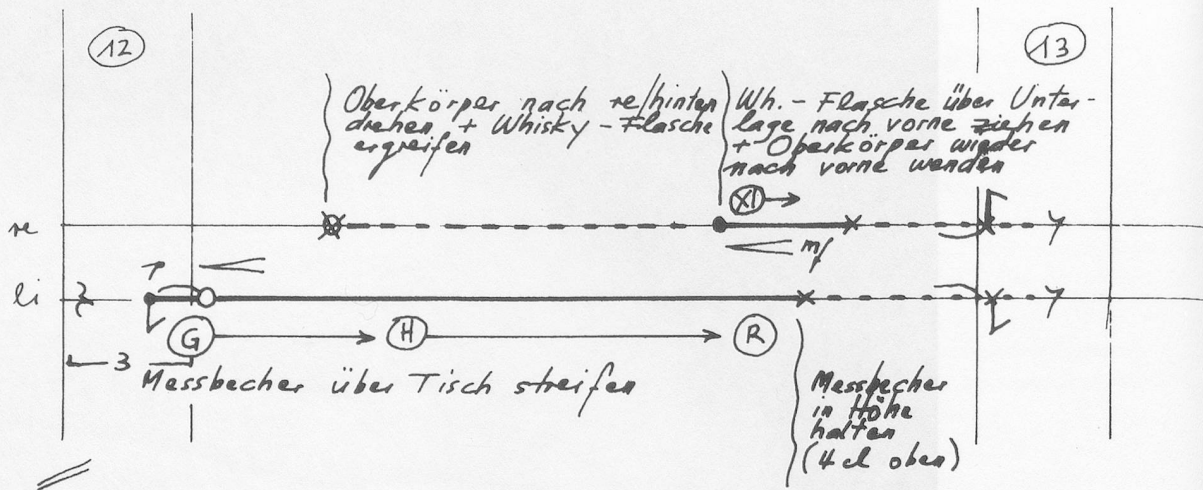 12
13
Oberkörper nach re/hinten
drehen + Whisky-Flasche
ergreifen
Wh.-Flasche über Unter-
lage nach vorne ziehen
+ Oberkörper wieder
nach vorne wenden
re
XI
mf
li
p
G
H
R
3
Messbecher über Tisch streifen
Messbecher
in Höhe
halten
(4 cl oben)